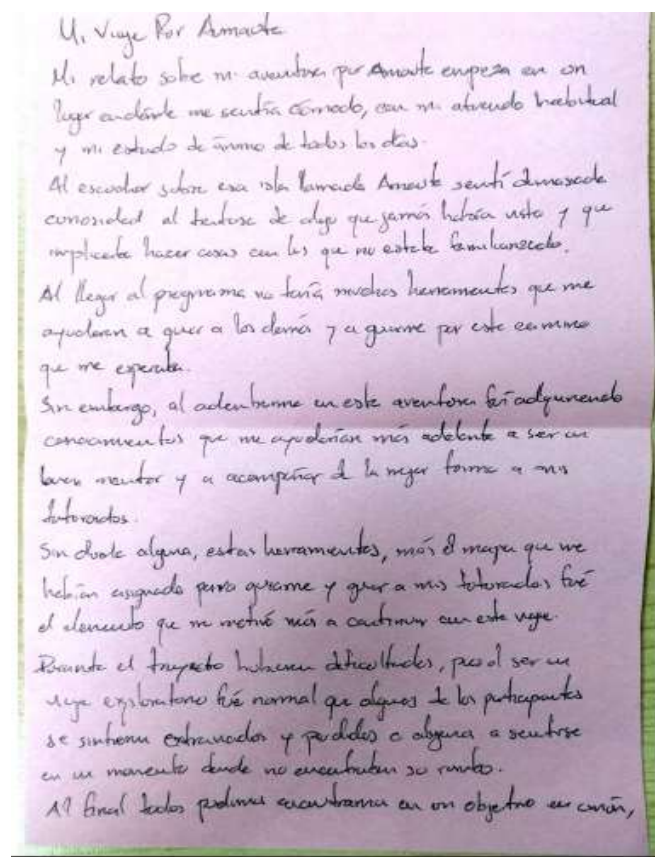 Mi Viaje Por Amaute
Mi relato sobre mi aventura por Amaute empeza en un
lugar en donde me sentía cómodo, con mi atuendo habitual
y mi estado de ánimo de todos los días.
Al escuchar sobre esa isla llamada Amaute sentí demasiada
curiosidad al tratarse de algo que jamás había visto y que
implicaba hacer cosas con las que no estaba familiarizado.
Al llegar al programa no tenía muchas herramientas que me
ayudaran a guiar a los demás y a guiarme por este camino
que me esperaba.
Sin embargo, al adentrarme en esta aventura fui adquiriendo
conocimientos que me ayudarían más adelante a ser un
buen mentor y a acompañar de la mejor forma a mis
tutorados.
Sin duda alguna, estas herramientas, más el mapa que me
habían asignado para guiarme y guiar a mis tutorados fué
el elemento que me motivó más a continuar con este viaje.
Durante el trayecto hubieron dificultades, pues al ser un
viaje exploratorio fué normal que algunos de los participantes
se sintieran extraviados y perdidos o a sentirse
en un momento donde no encontraban su rumbo.
Al final todos pudimos encontrarnos en un objetivo en común,